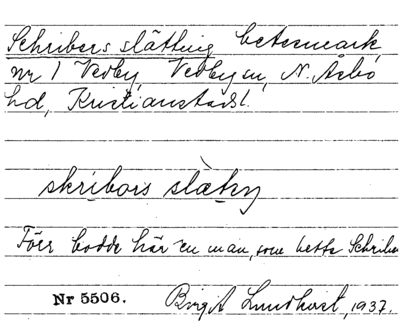 Schribers slåttnig, betesmark
nr 1 Vedby, Vedby sn, N. Åsbo
hd, Kristianstads l.
skribors slætny
Förr bodde här en man, som hette Schriber
Nr 5506. Birgit Lundkvist, 1937.